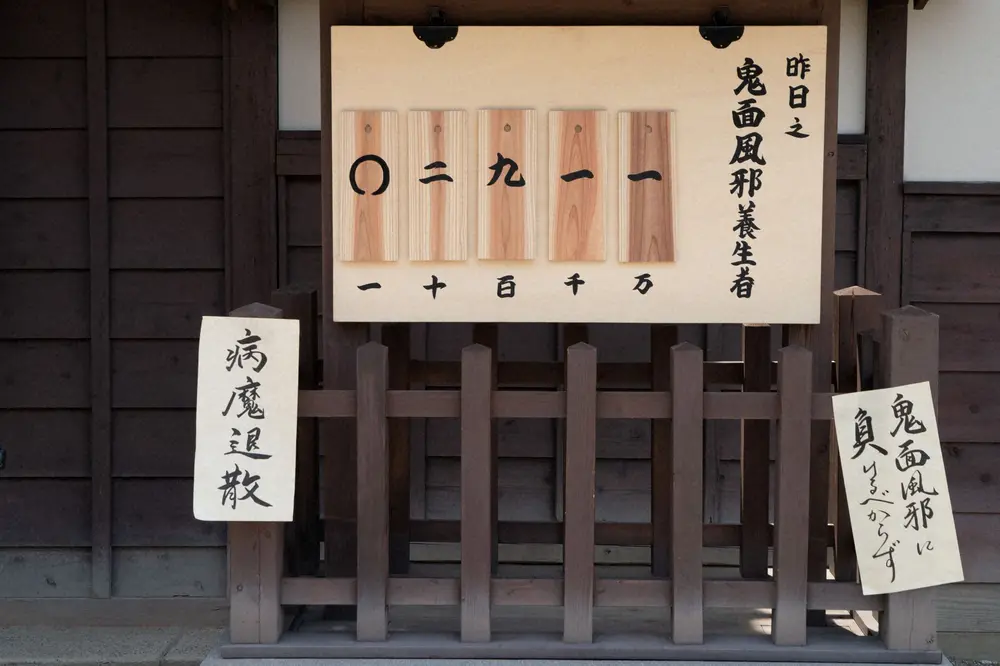 昨日之
鬼面風邪養生者
一一九二〇
万千百十一
病魔退散
鬼面風邪に
負けるべからず